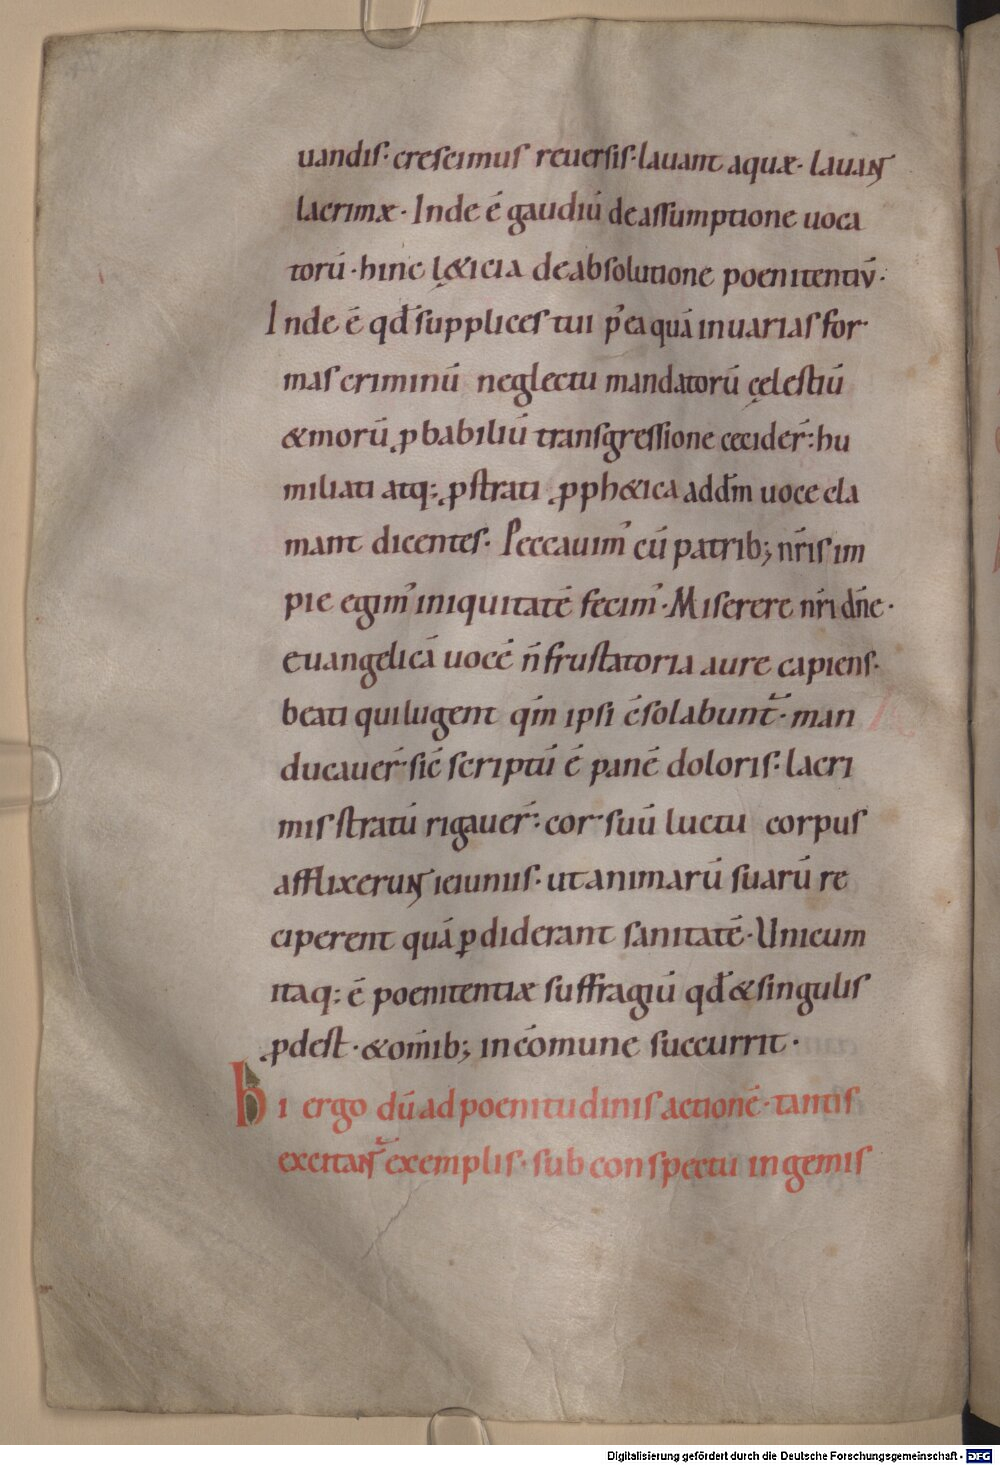 uandis· crescimus reuersis· lauant aquæ· lauant
lacrimæ· Inde ē gaudiū de assumptione uoca
torū· hinc lęticia de absolutione poenitentiū·
Inde ē qđ supplices tui p̾ea quā in uarias for
mas criminū neglectu mandatorū cęlestiū
&morū ꝓbabiliū transgressione cecider̄: hu
miliati atq: ꝓstrati ꝓph&ica add̄m uoce cla
mant dicentes· Peccauim᾽ cū patrib; nr̄is im
pie egim᾽ iniquitatē fecim᾽· Miserere nr̄i dn̄e·
euangelicā uocē n̄ frustatoria aure capiens·
beati qui lugent qm̄ ipsi c̄solabunt̄· man
ducauer̄ sic̄ scriptū ē panē doloris· lacri
mis stratū rigauer̄: cor suū luctu corpus
afflixerunt ieiuniis· ut animarū suarū re
ciperent quā ꝑdiderant sanitatē· Unicum
itaq: ē poenitentiæ suffragiū qđ & singulis
ꝓdest· & om̄ib; in cōmune succurrit·
hi ergo dū ad poenitudinis actionē· tantis
excitant̄ exemplis· sub conspectu ingemis
Digitalisierung gefördert durch die Deutsche Forschungsgemeinschaft - DFG